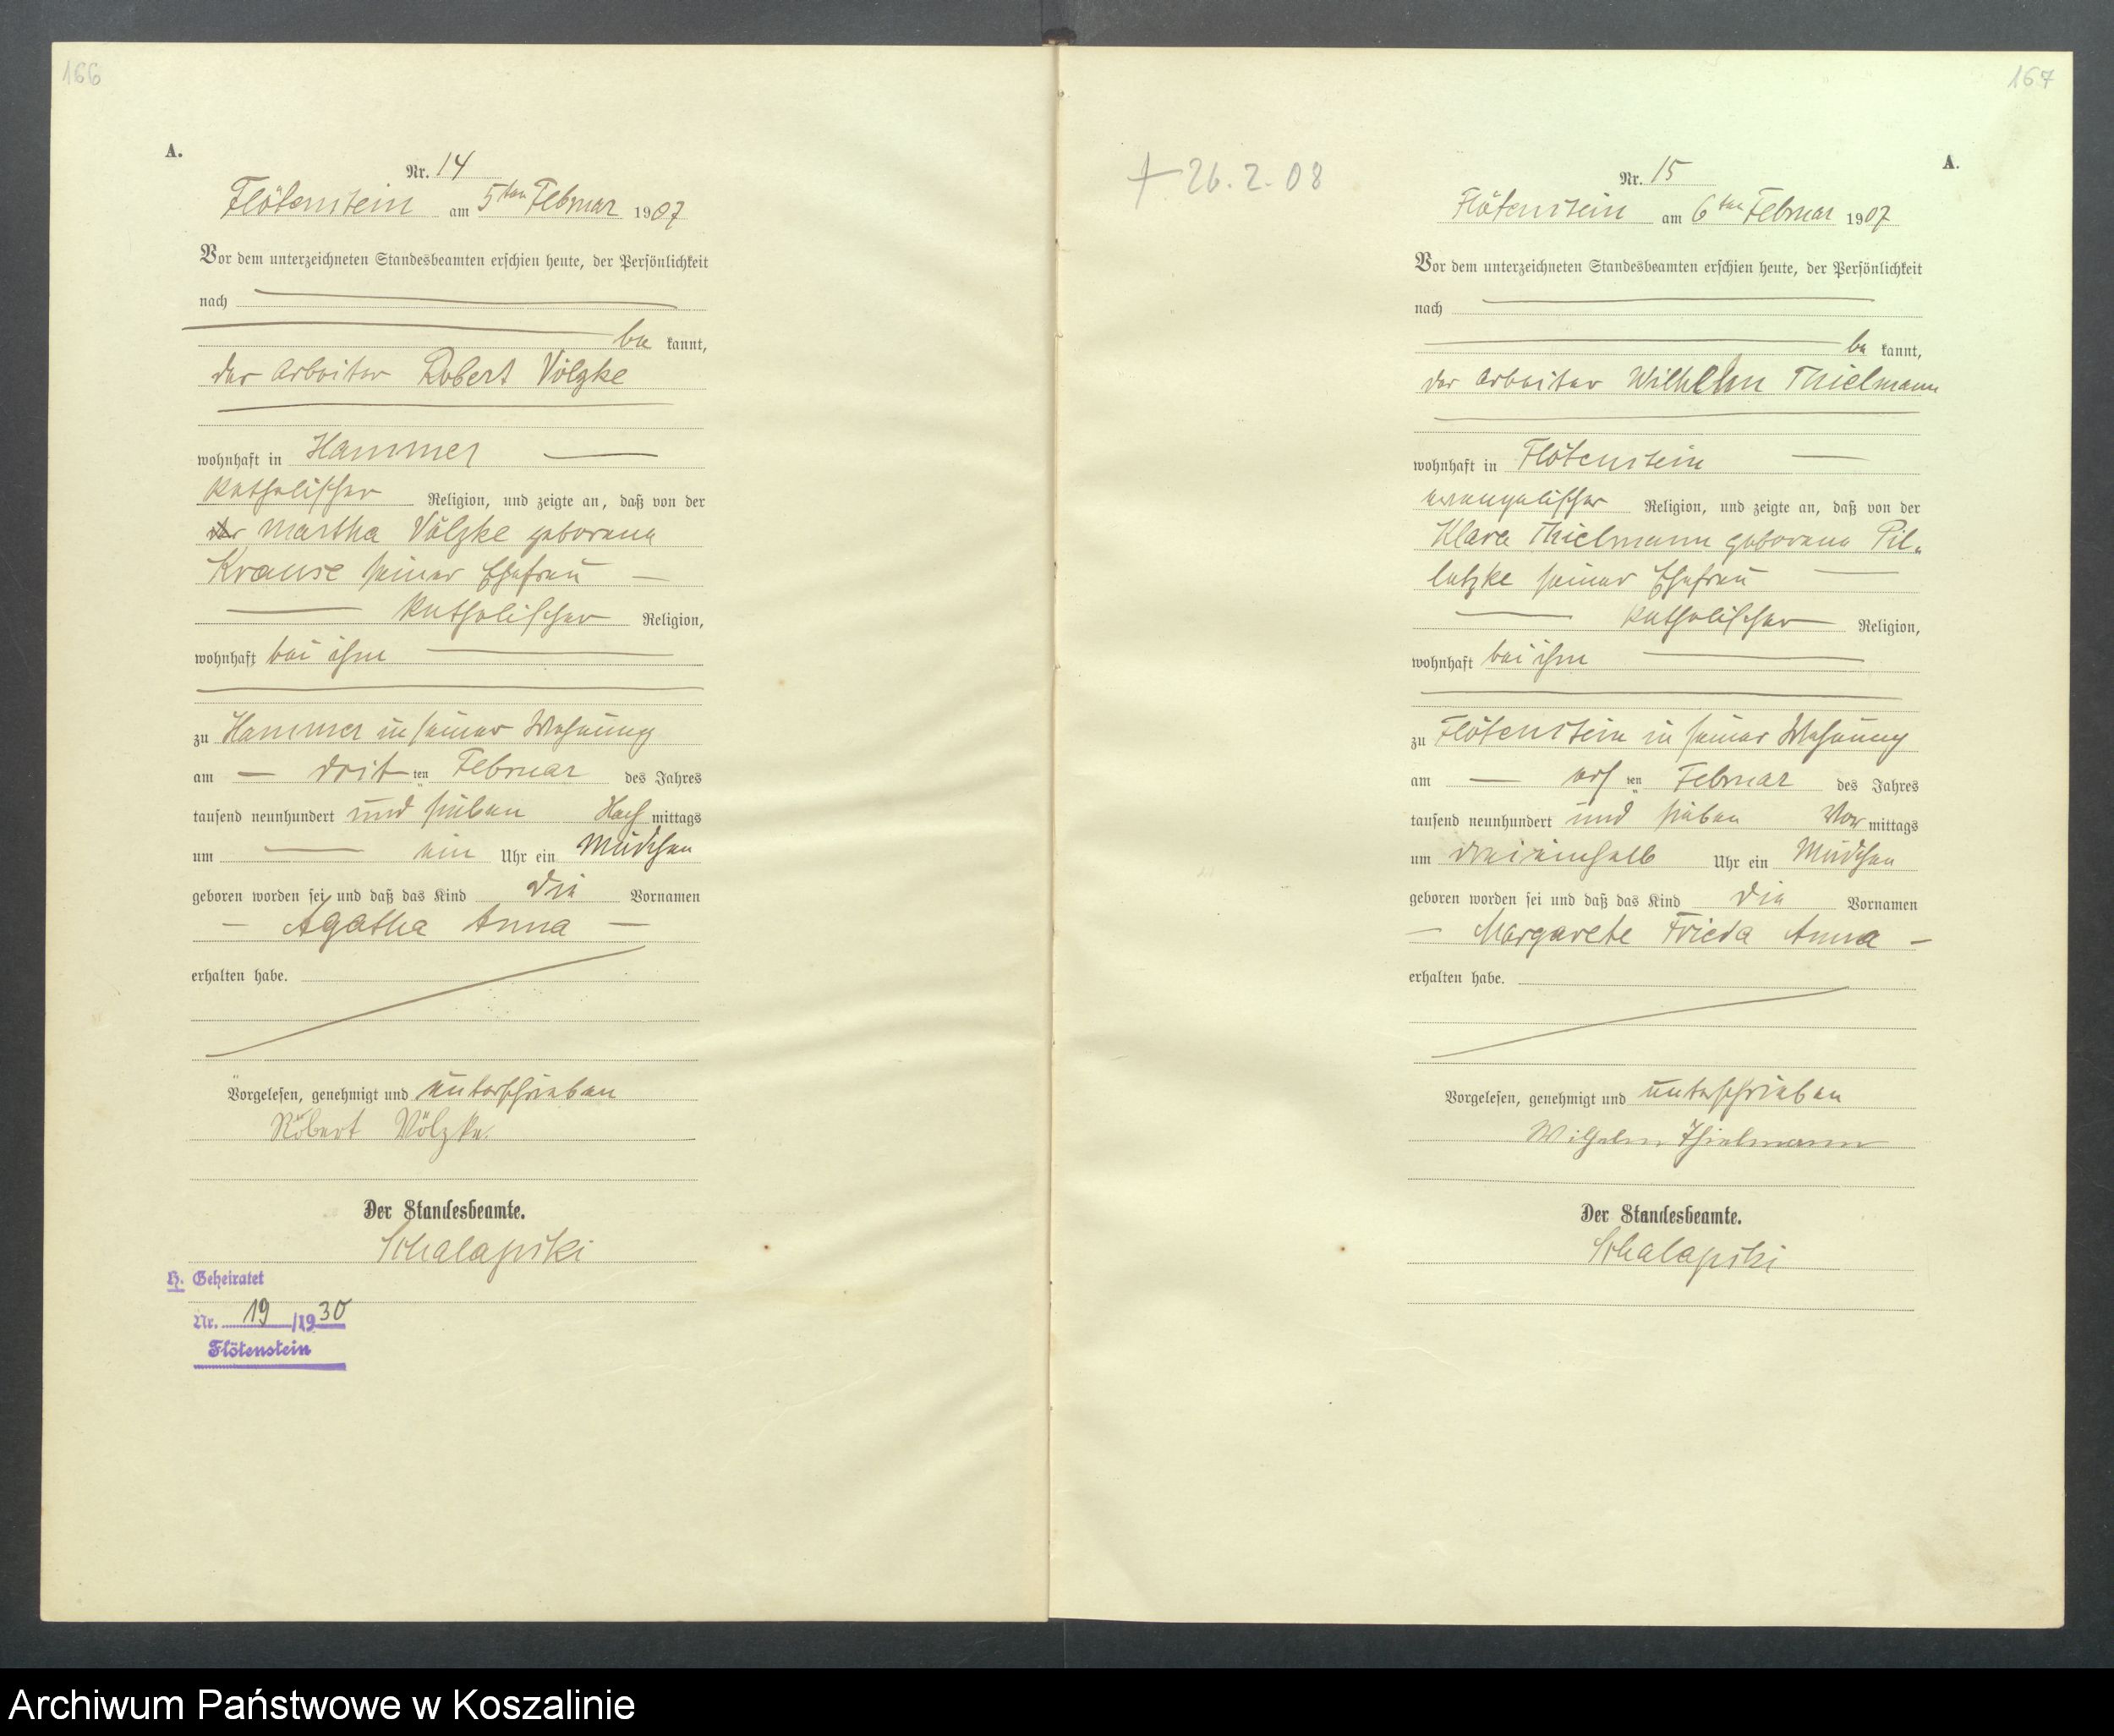 166
A.
Nr. 14
Flötenstein am 5ten Februar 1907
Vor dem unterzeichneten Standesbeamten erschien heute, der Persönlichkeit
nach
be kannt,
der Arbeiter Robert Völzke
wohnhaft in Hammer
katholischer Religion, und zeigte an, daß von der
der Martha Völzke geborene
Krause seiner Ehefrau
katholischer Religion,
wohnhaft bei ihm
zu Hammer in seiner Wohnung
am dritten Februar des Jahres
tausend neunhundert und sieben Nachmittags
um ein Uhr ein Mädchen
geboren worden sei und daß das Kind die Vornamen
Agatha Anna
erhalten habe.
Vorgelesen, genehmigt und unterschrieben
Robert Völzke.
Der Standesbeamte.
Schalapski
H. Geheiratet
Nr. 19 /1930
Flötenstein
167
A.
+ 26. 2. 08
Nr. 15
Flötenstein am 6ten Februar 1907
Vor dem unterzeichneten Standesbeamten erschien heute, der Persönlichkeit
nach
be kannt,
der Arbeiter Wilhelm Thielmann
wohnhaft in Flötenstein
evangelischer Religion, und zeigte an, daß von der
Klara Thielmann geborene Pil-
latzke seiner Ehefrau
katholischer Religion,
wohnhaft bei ihm
zu Flötenstein in seiner Wohnung
am ersten Februar des Jahres
tausend neunhundert und sieben Vormittags
um dreieinhalb Uhr ein Mädchen
geboren worden sei und daß das Kind die Vornamen
Margarete Frieda Anna
erhalten habe.
Vorgelesen, genehmigt und unterschrieben
Wilhelm Thielmann
Der Standesbeamte.
Schalapski
Archiwum Państwowe w Koszalinie